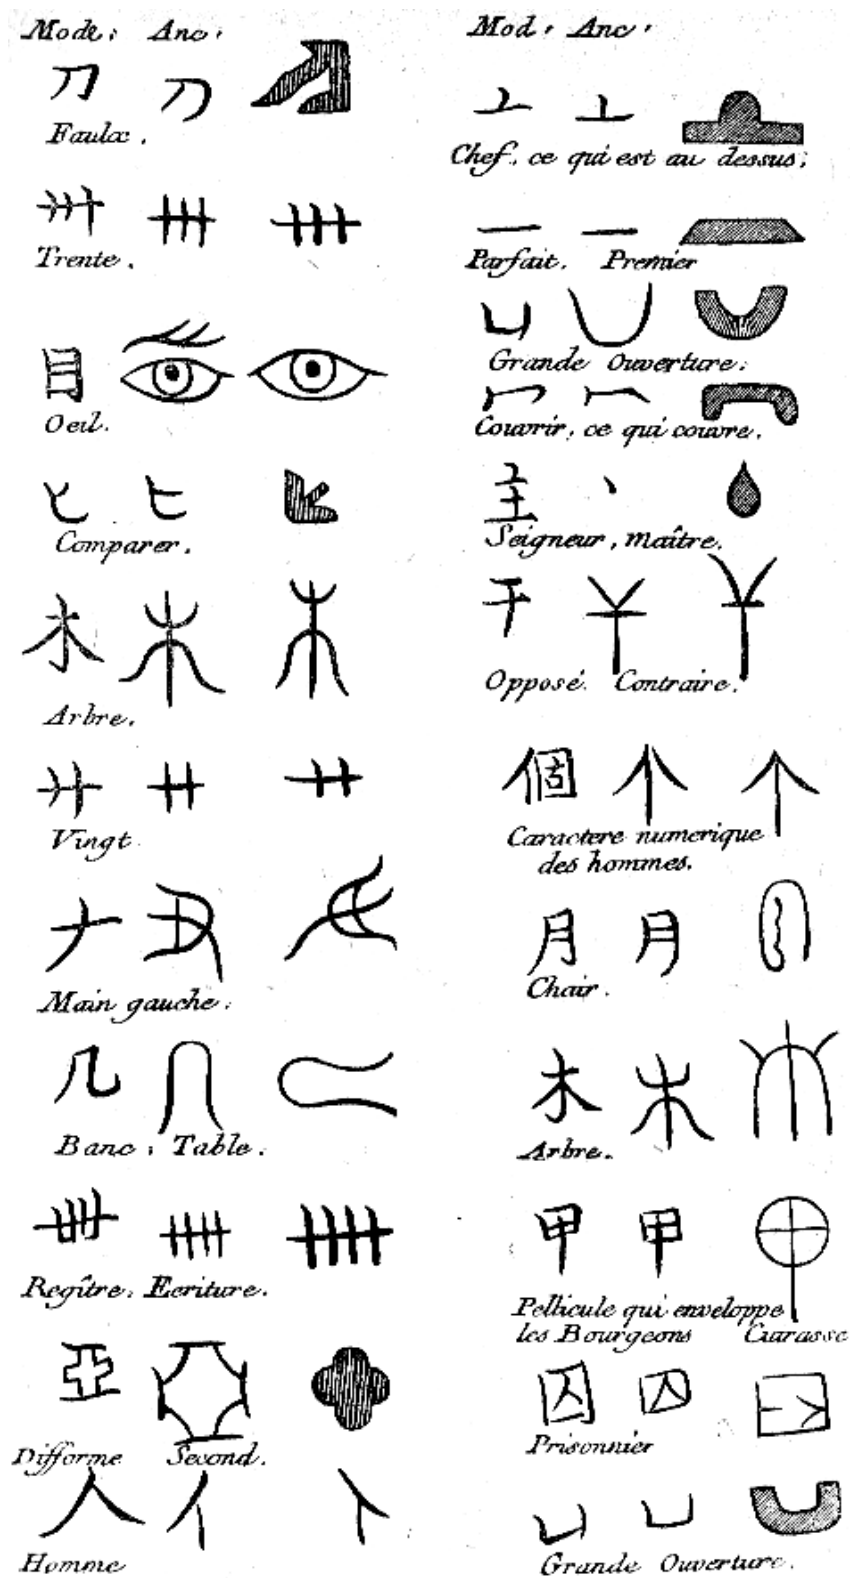 Mode: Anc:
刀 刀
Faulx.
卅 卅
Trente.
目
Oeil.
Comparer.
木
Arbre.
廿 廿
Vingt
Main gauche:
几
Banc, Table.
卌 卌
Regître. Ecriture.
亞
Difforme Second.
人
Homme
Mod, Anc,
Chef, ce qui est au dessus;
一 一
Parfait. Premier
凵
Grande Ouverture:
Couvrir, ce qui couvre.
丶
Seigneur, maître.
干
Opposé. Contraire.
個
Caractere numerique
des hommes.
月 月
Chair.
木
Arbre.
甲 甲
Pellicule qui enveloppe
les Bourgeons Cuirasse
囚 囚
Prisonnier
凵 凵
Grande Ouverture.